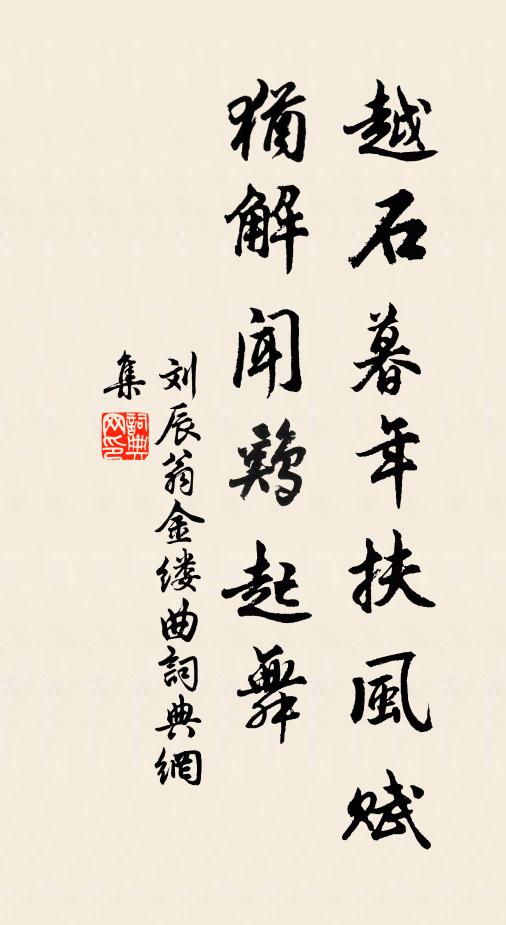 越石暮年扶風賦
猶解聞鷄起舞
刘辰翁金缕曲詞典網
集
詞典網印